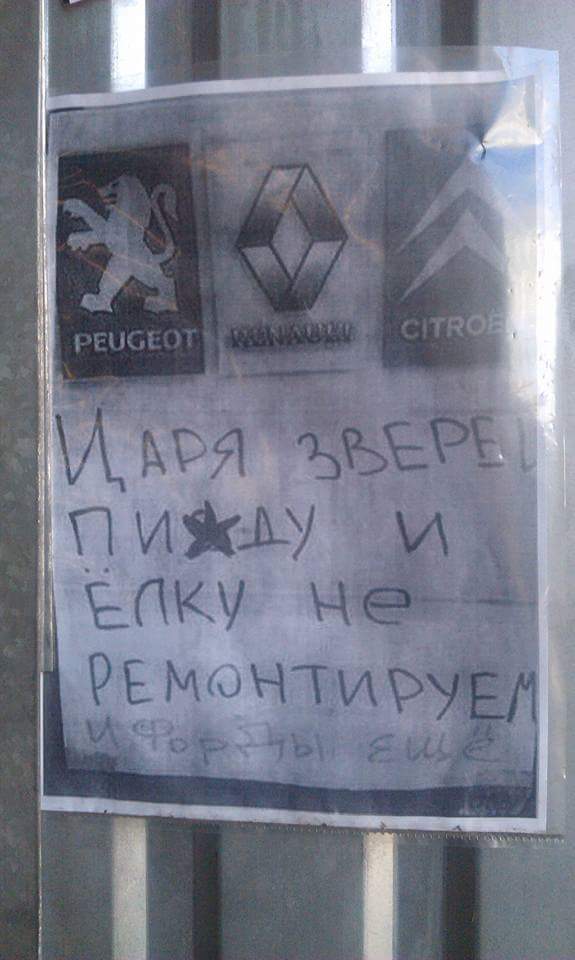 PEUGEOT RENAULT CITROË
ЦАРЯ ЗВЕРЕЙ
ПИ★ДУ И
ЁЛКУ Не
РЕМОНТИРУЕМ
и Форды ещё